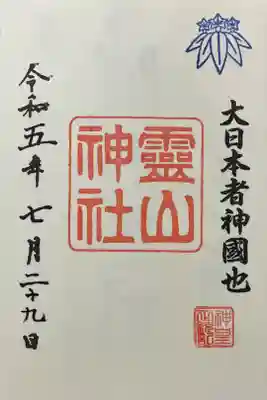 大日本者神國也
靈山
神社
令和五年七月二十九日